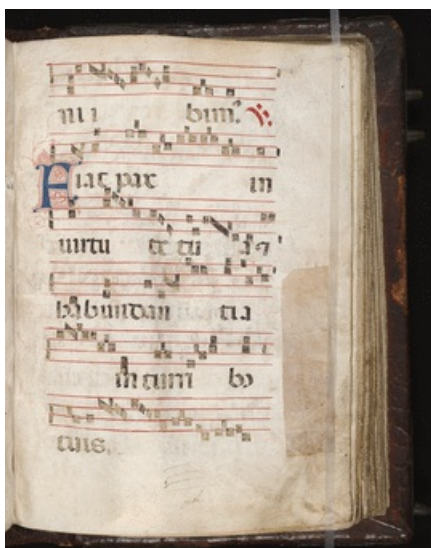 ni i bimꝰ
Fiat pax in
uirtu te tu a ⁊
habundan tia
in turri bꝰ
tuis.